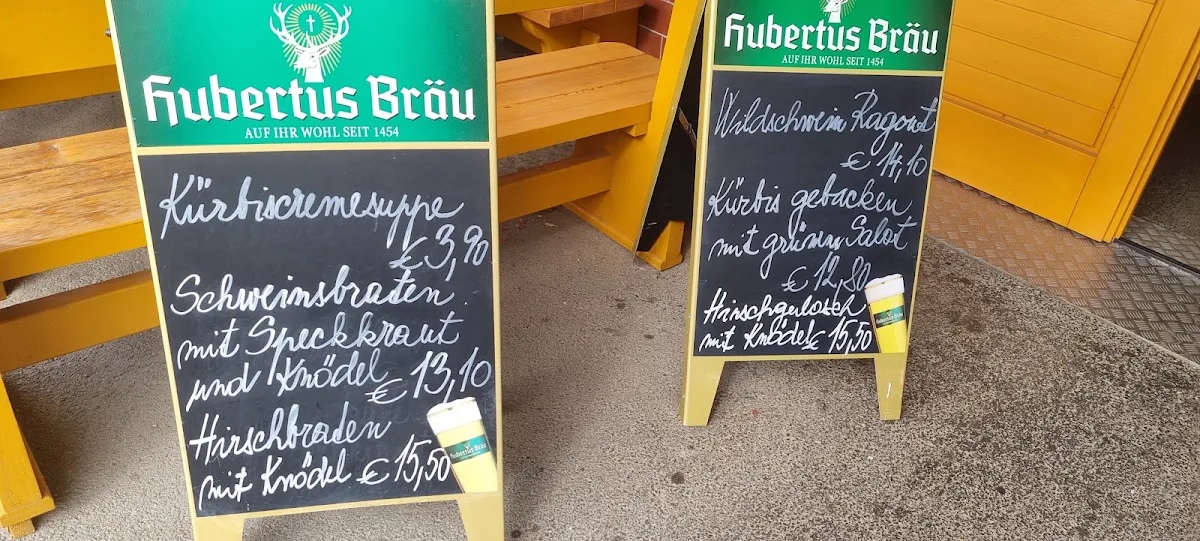 Hubertus Bräu
AUF IHR WOHL SEIT 1454
Kürbiscremesuppe
€ 3,90
Schweinsbraten
mit Speckkraut
und Knödel € 13,10
Hirschbraden
mit Knödel € 15,50
Hubertus Bräu
Hubertus Bräu
AUF IHR WOHL SEIT 1454
Wildschwein Ragout
€ 14,10
Kürbis gebacken
mit grünem Salat
€ 12,80
Hirschgulasch
mit Knödel € 15,50
Hubertus Bräu